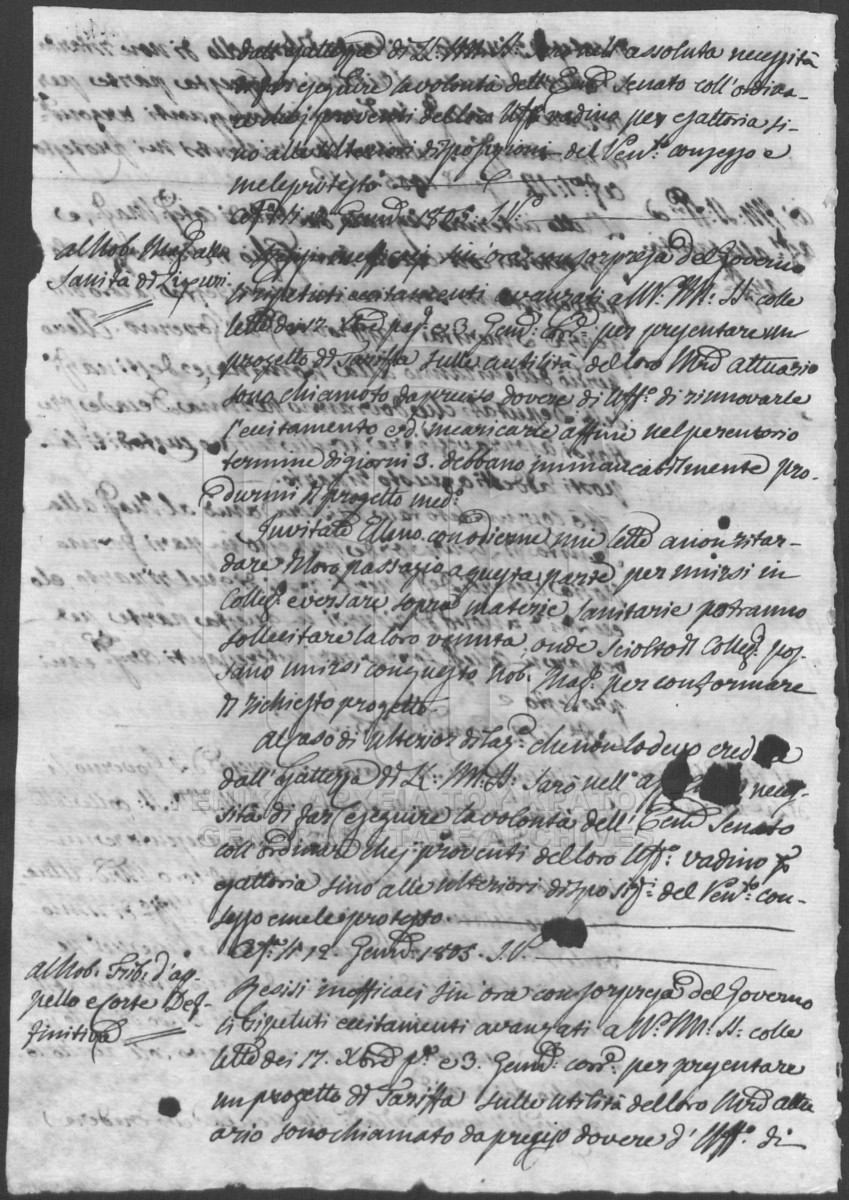 dall'esatezza di LL: MM: SS: sarò nell'assoluta necessità
di far eseguire la volontà dell'Ecmo Senato coll'ordina-
re che i proventi del loro Uffo vadino per esattoria si-
no alle ulteriori disposizioni del Vento consesso e
me le protesto
Argli li 12 Gennro 1805. S.V.
al Nob. Magto alla
Sanità di Lixuri.
Resisi inefficaci sin'ora con sorpresa del Governo
li ripetuti eccitamenti avanzati a VV: MM: SS: colle
lettre dei 17. Xbre pso e 3. Gennro corrte per presentare un
progetto di Tariffa sulle utilità del loro Nro attuario
sono chiamato da preciso dovere di Uffo di rinnovarle
l'eccitamento ed incaricarle affine nel perentorio
termine di giorni 3. debbano immancabilmente pro-
durmi il progetto medo
Invitate Elleno con odierne mie lettre a non ritar-
dare il loro passaggio a questa parte per unirsi in
Collego e versare sopra materie sanitarie potranno
sollecitare la loro venuta, onde sciolto il Collego pos-
sano unirsi con questo Nob. Mago per conformare
il richiesto progetto.
Al caso di ulterior dilazne che non lo devo creder
dall'esatezza di LL: MM: SS: sarò nell' neces-
sità di far eseguire la volontà dell'Ecmo Senato
coll'ordinare che i proventi del loro Uffo vadino p
esattoria sino alle ulteriori disposizi del Vento con-
sesso e me le protesto.
Argli li 12 Gennro 1805. S.V.
al Nob. Trib. d'ap-
pello e Corte Def-
finitiva
Resisi inefficaci sin'ora con sorpresa del Governo
li ripetuti eccitamenti avanzati a VV: MM: SS: colle
lettre dei 17. Xbre po e 3. Gennro corrte per presentare
un progetto di Tariffa sulle utilità del loro Nro attu
ario sono chiamato da preciso dovere d'Uffo di